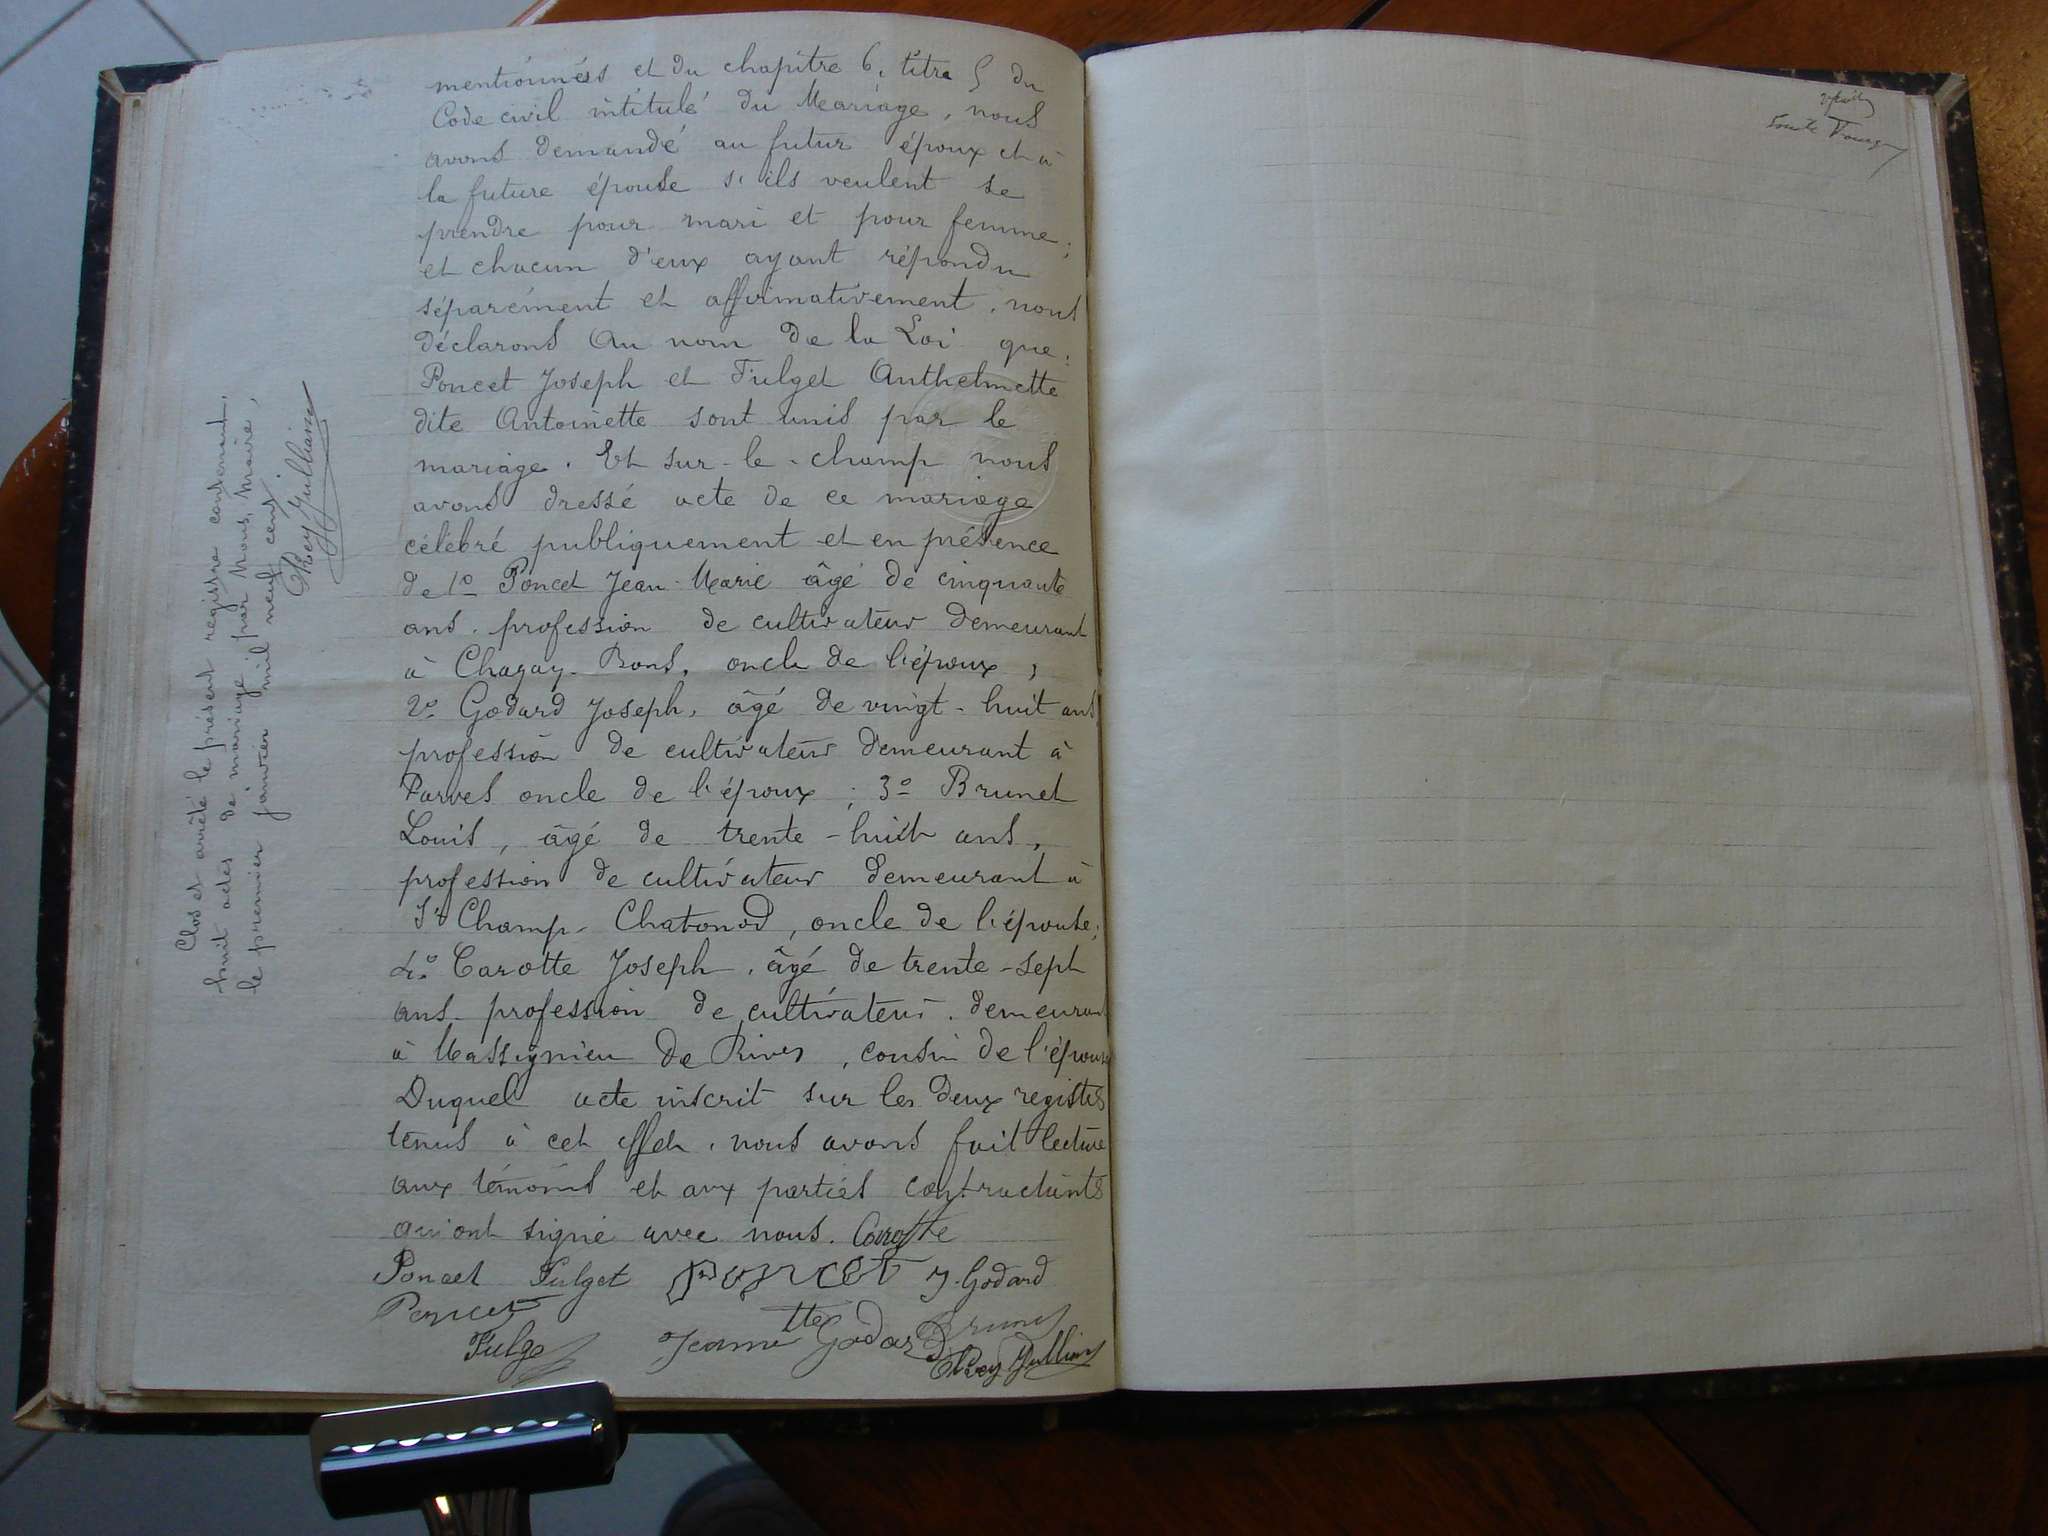 mentionnés et du chapitre 6, titre 5 du
Code civil intitulé du Mariage, nous
avons demandé au futur époux et à
la future épouse s'ils veulent se
prendre pour mari et pour femme;
et chacun d'eux ayant répondu
séparément et affirmativement, nous
déclarons au nom de la Loi que:
Poncet Joseph et Fulget Anthelmette
dite Antoinette sont unis par le
mariage. Et sur-le-champ nous
avons dressé acte de ce mariage
célébré publiquement et en présence
de 1º Poncet Jean-Marie âgé de cinquante
ans. profession de cultivateur demeurant
à Chazay-Bons, oncle de l'époux;
2º Godard Joseph, âgé de vingt-huit ans
profession de cultivateur demeurant à
Parves oncle de l'époux; 3º Brunet
Louis, âgé de trente-huit ans,
profession de cultivateur demeurant à
St Champ-Chatonod, oncle de l'épouse;
4º Carotte Joseph, âgé de trente-sept
ans. profession de cultivateur. demeurant
à Massignieu de Rives, cousin de l'épouse
Duquel acte inscrit sur les deux registres
tenus à cet effet, nous avons fait lecture
aux témoins et aux parties contractants
qui ont signé avec nous. Carotte
Poncet Fulget Poncet J. Godard
Poncet Jeannette Godard Brunet
Fulget Chey Jullian
Clos et arrêté le présent registre contenant,
huit actes de mariage par Nous, Maire,
le premier janvier mil neuf cent
Chey Jullian